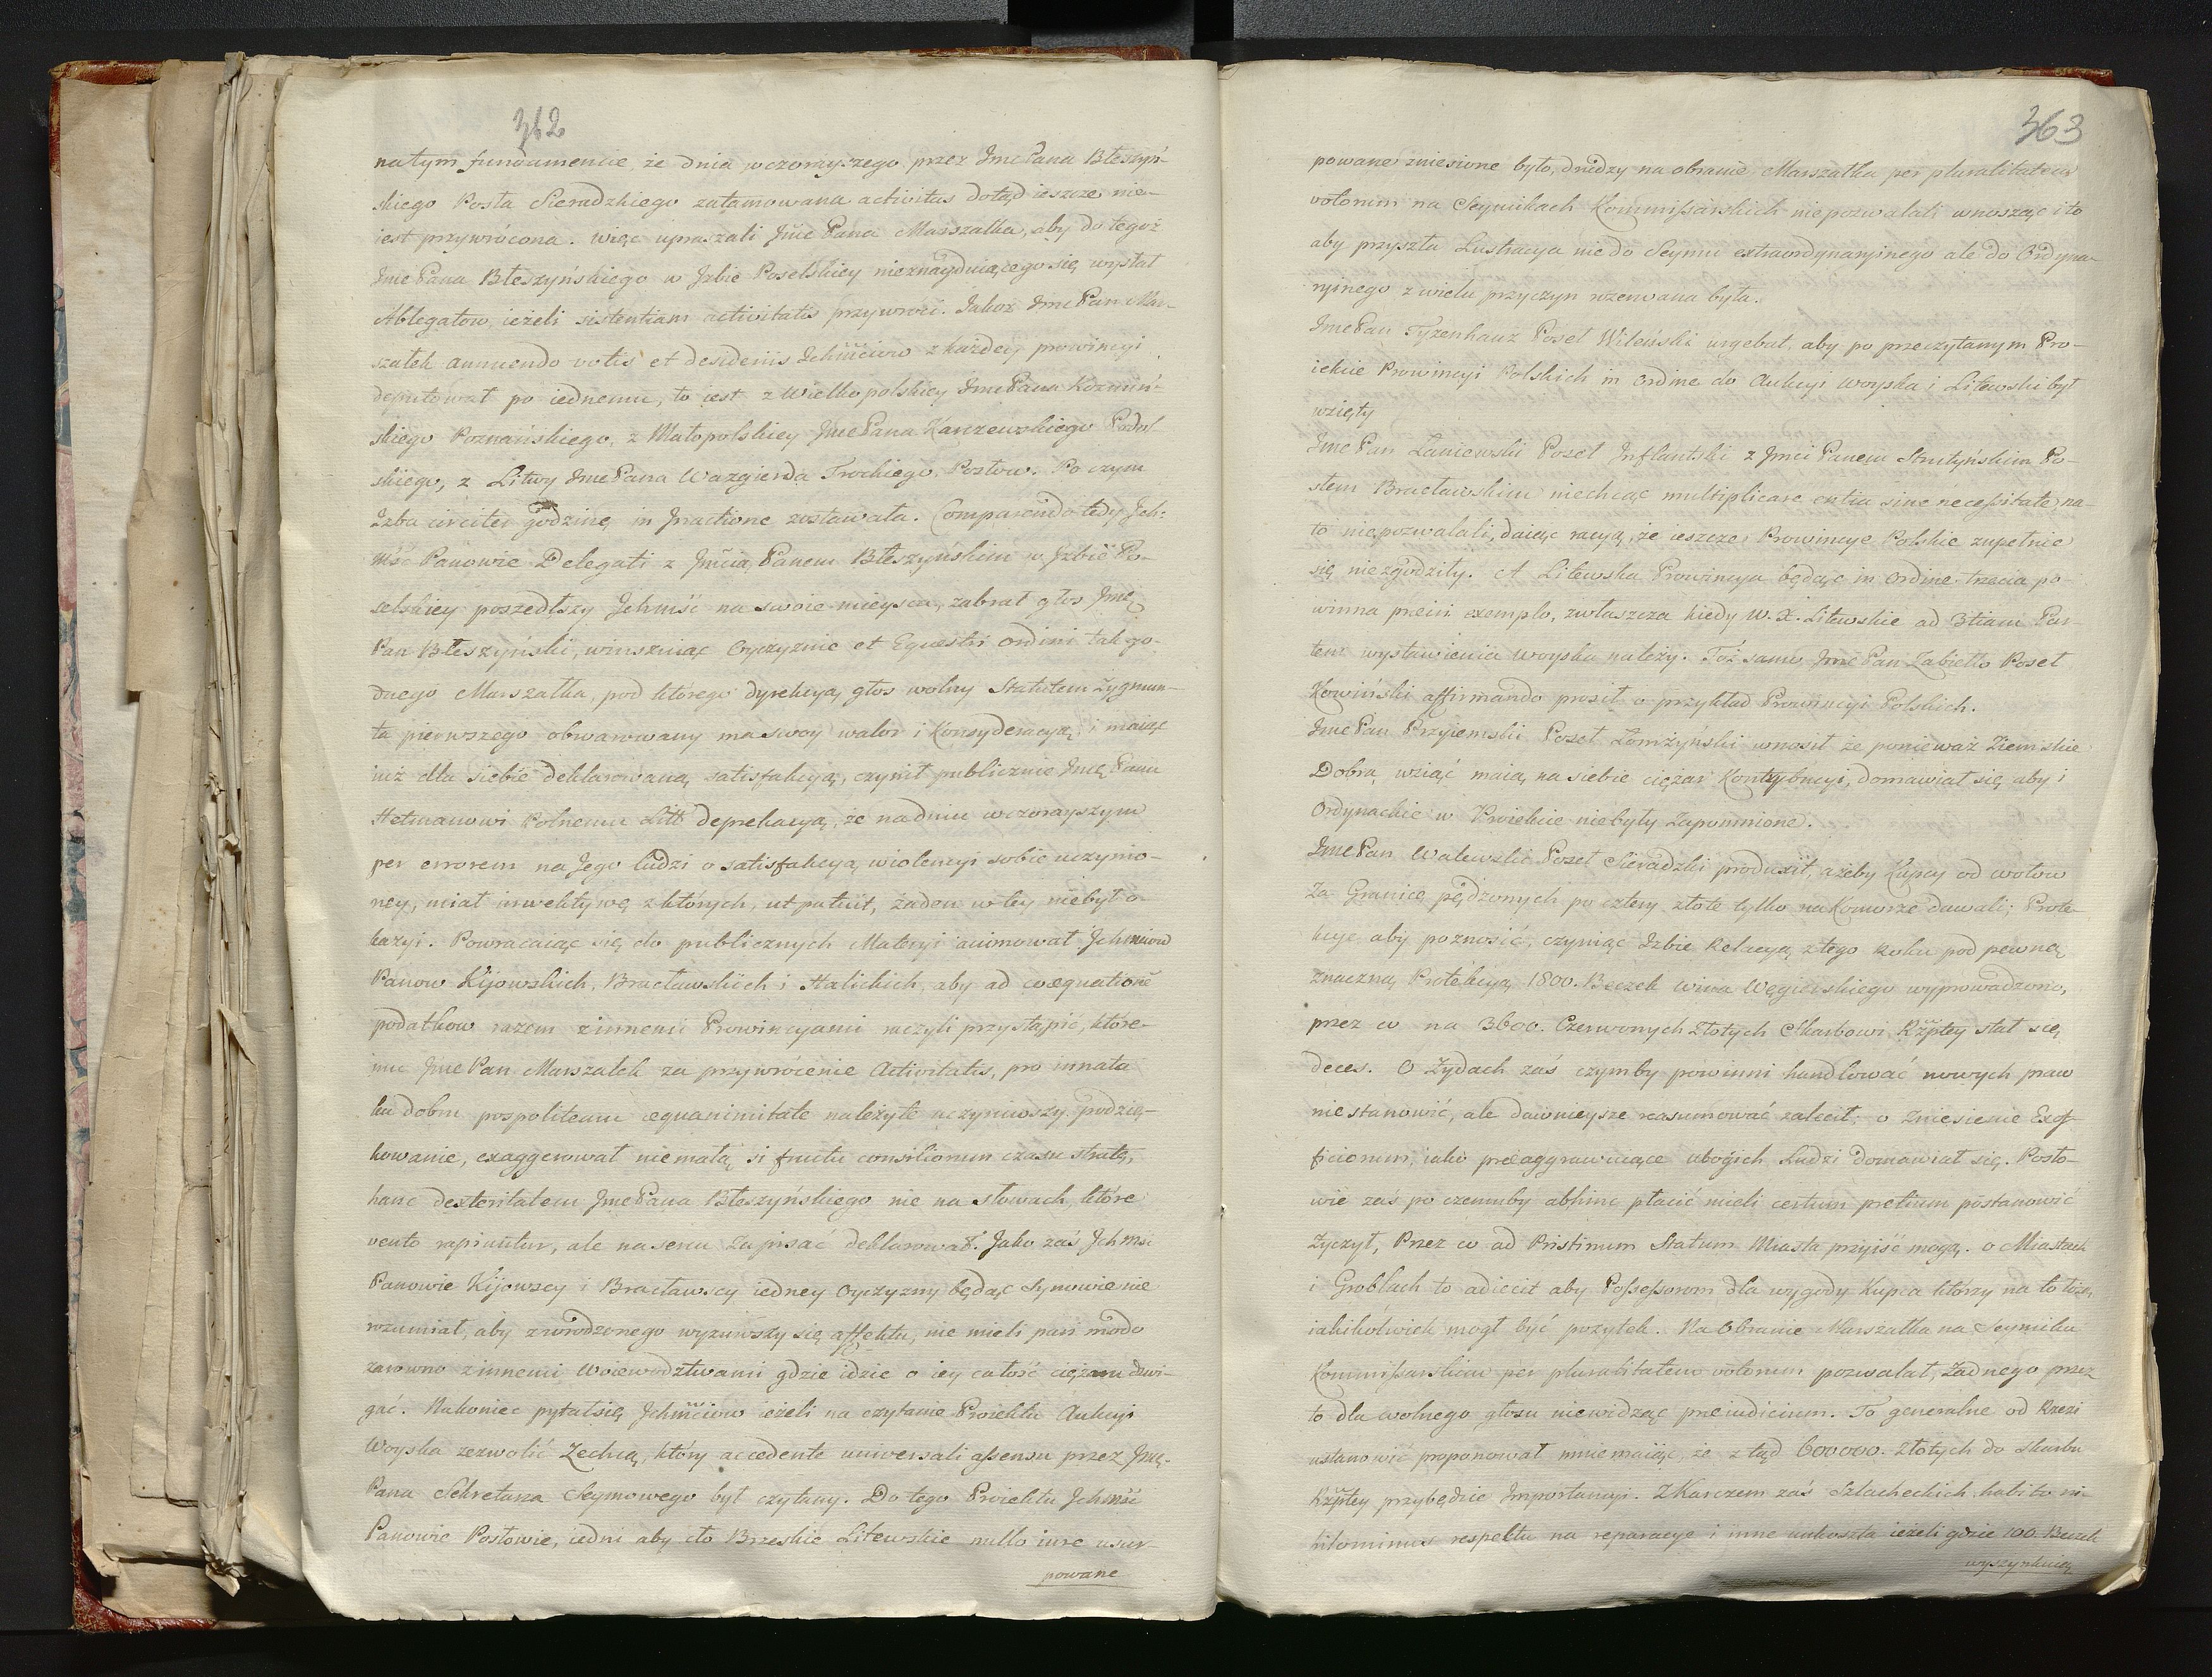 362
na tym fundamencie, że dnia wczorayszego przez Jmc Pana Błeszyń-
skiego Posła Sieradzkiego zatamowana activitas dotąd ieszcze nie-
iest przywrócona. więc upraszali Jmc Pana Marszałka, aby do tegoż
Jmc Pana Błeszyńskiego w Jzbie Poselskiey nieznayduiącego się wysłał
Ablegatow, ieżeli sistentiam activitatis przywróci. Jakoż Jmc Pan Mar-
szałek annuendo votis et desideriis Ichmściow z każdey prowincyi
deputował po iednemu, to iest z Wielkopolskiey Jmc Pana Koźmiń-
skiego Poznańskiego, z Małopolskiey Jmc Pana Karczewskiego Podol
skiego, z Litwy Jmc Pana Wazgierda Trockiego Posłow. Po czym
Izba circiter godzinę in Inactione zostawała. Comparendo tedy Jch-
mść Panowie Delegati z Jmcią Panem Błeszyńskim w Jzbie Po-
selskiey poszedłszy Jchmść na swoie mieysca, zabrał głos Jmć
Pan Błeszyński, winszuiąc Oyczyznie et Equestri ordini tak go-
dnego Marszałka, pod którego dyrekcyą głos wolny Statutem Zygmun-
ta pierwszego obwarowany ma swoy walor i Konsyderacyą, i maiąc
iuż dla siebie deklarowaną satisfakcyą, czynił publicznie Jmć Panu
Hetmanowi Polnemu Litt deprekacyą, że na dniu wczorayszym
per errorem na Jego ludzi o satisfakcyą wiolencyi sobie uczynio-
ney, miał inwektywę z których, ut patuit, żaden w tey niebył o-
kazyi. Powracaiąc się do publicznych Materyi animował Jchmciow
Panow Kijowskich, Bracławskich i Halickich, aby ad coæquationē
podatkow razem z innemi Prowincyami raczyli przystąpić, które-
mu Jmc Pan Marszałek za przywrócenie Activitatis, pro innata
ku dobru pospolitemu æquanimitate należyte uczyniwszy podzię-
kowanie, exaggerował niemałą, si fructu consiliorum czasu stratę,
hanc dexteritatem Jmc Pana Błeszyńskiego nie na słowach, które
vento rapiuntur, ale na sercu Zapisać deklarował. Jako zaś Jchmść
Panowie Kijowscy i Bracławscy iedney Oyczyzny będąc Synowie nie
rozumiał, aby z wrodzonego wyzuwszy się affektu, nie mieli pari modo
zarowno z innemi Woiewodztwami gdzie idzie o iey całość ciężaru dzwi-
gać. Nakoniec pytał się Jchmściow ieżeli na czytanie Proiektu Aukcyi
Woyska zezwolić Zechcą, który accedente universali assensu przez Jmć
Pana Sekretarza Seymowego był czytany. Do tego Proiektu Jchmść
Panowie Posłowie, iedni aby cło Brzeskie Litewskie nullo iure usur-
powane
363
powane zniesione było, drudzy na obranie Marszałka per pluralitatem
votorum na Seymikach Kommissarskich niepozwalali wnosząc i to
aby przyszła Lustracya nie do Seymu extraordynaryinego ale do Ordyna-
ryinego z wielu przyczyn rzerwana była.
Jmc Pan Tyzenhauz Poseł Wileński urgebat, aby po przeczytanym Pro-
iekcie Prowincyi Polskich in ordine do Aukcyi woyska i Litewski był
wzięty
Jmc Pan Laniewski Poseł Inflantski z Jmci Panem Strutyńskim Po-
słem Bracławskim niechcąc multiplicare entia sine necessitate, na-
to niepozwalali, daiąc racyą, że ieszcze Prowincye Polskie zupełnie
się niezgodziły. A Litewska Prowincya będąc in ordine trzecia po-
winna præiri exemplo, zwłaszcza kiedy W. X. Litewskie ad 3tiam Par-
tem wystawienia woyska należy. Toż samo Jmc Pan Zabiełło Poseł
Kowiński affirmando prosił o przykład Prowincyi Polskich.
Jmc Pan Przyiemski Poseł Łomżyński wnosił że ponieważ Ziemskie
Dobra, wziąć maią na siebie ciężar Kontrybucyi, domawiał się aby i
Ordynackie w Proiekcie niebyły Zapomnione.
Jmc Pan Walewski Poseł Sieradzki produxit, ażeby Kupcy od wołow
Za Granicę pędzonych po cztery złote tylko na Komorze dawali; Prote-
kcye aby poznosić, czyniąc Izbie Relacyą z tego Roku pod pewną
znaczną Protekcyą 1800. Beczek Wina Węgierskiego wyprowadzono,
przez co na 3600. Czerwonych Złotych Skarbowi Rzptey stał się
deces. O Zydach zaś czymby powinni handlować nowych praw
niestanowić, ale dawnieysze reasumować zalecił; o Zniesienie Exof-
ficiorum, iako præaggrawuiące ubogich Ludzi domawiał się. Posło-
wie zaś po czemuby abhinc płacić mieli certum pretium postanowić
Zyczył, Przez co ad Pristinum Statum Miasta przyiść mogą. o Mostach
i Groblach to adiecit aby Possessorom dla wygody Kupca którzy na to łożą,
iakikolwiek mogł być pożytek. Na Obranie Marszałka na Seymiku
Kommissarskim per pluralitatem votorum pozwalał, Zadnego przez
to dla wolnego głosu niewidząc preiudicium. To generalne od Rzezi
ustanowić proponował mniemaiąc, że z tąd 600000. Złotych do Skarbu
Rzptey przybędzie Importancyi. Z Karczem zaś Szlacheckich habito ni-
hilominus respektu na reparacye i inne unkoszta ieżeli gdzie 100. Beczek
wyszynkuią